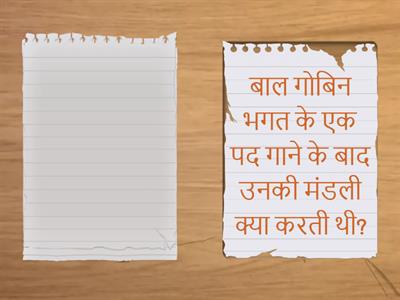 बाल गोबिन
भगत के एक
पद गाने के बाद
उनकी मंडली
क्या करती थी?